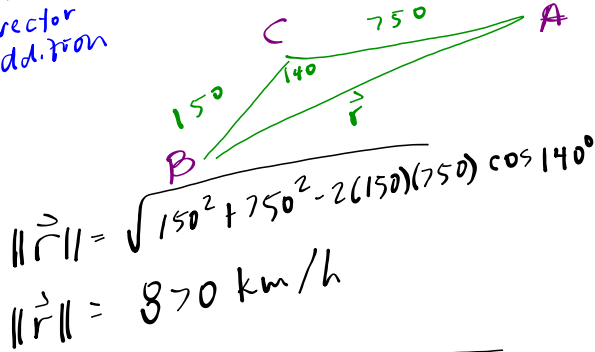 vector
addition
C
750
A
140
150
r⃗
B
||r⃗|| = √150² + 750² - 2(150)(750) cos 140°
||r⃗|| = 870 km/h